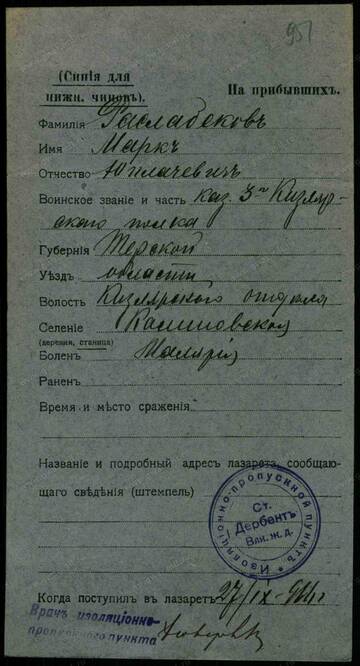 957
(Синія для
нижн. чиновъ).
На прибывшихъ.
Фамилія Раслабековъ
Имя Маркъ
Отчество
Воинское званіе и часть каз. 3го Кизляр-
скаго полка
Губернія Терской
Уѣздъ области
Волость Кизлярскаго отдѣла
Селеніе Калиновская
(деревня, станица)
Боленъ Малярія
Раненъ
Время и мѣсто сраженія
Названіе и подробный адресъ лазарета, сообщаю-
щаго свѣдѣнія (штемпель)
Изоляціонно-пропускной пунктъ
Ст.
Дербентъ
Влк. ж. д.
Когда поступилъ въ лазаретъ 27/IX-
Врачъ изоляціонно-
пропускного пункта